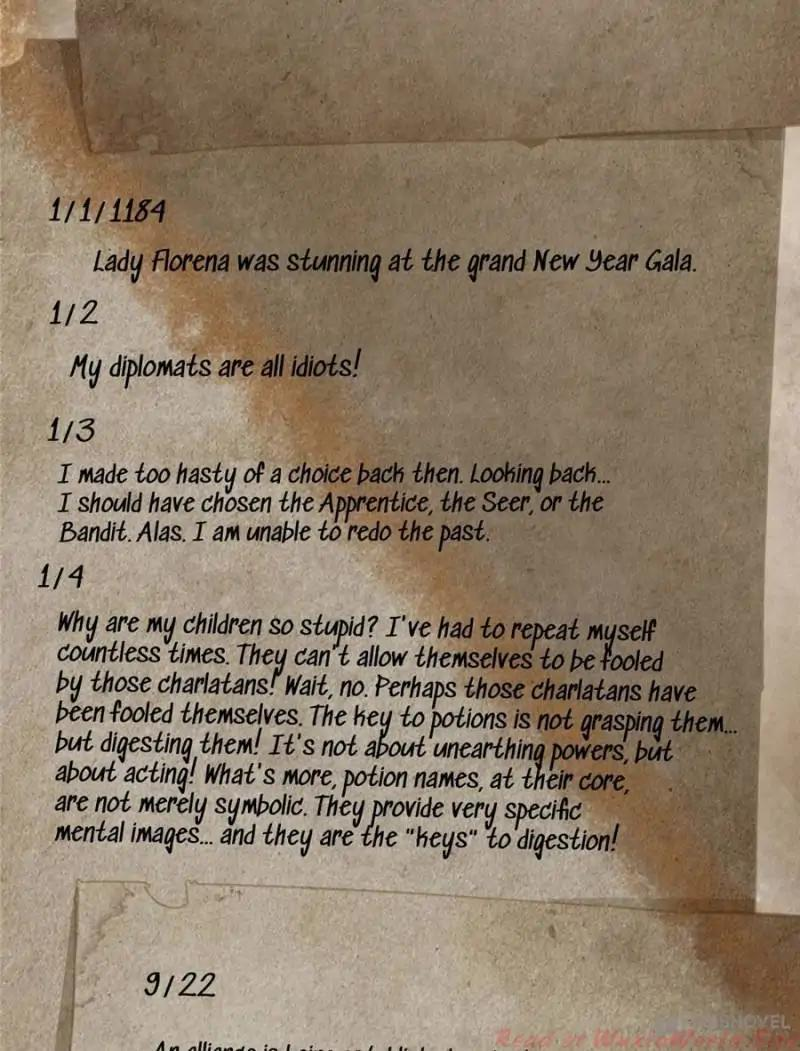 1/1/1184
Lady Florena was stunning at the grand New Year Gala.
1/2
My diplomats are all idiots!
1/3
I made too hasty of a choice back then. Looking back...
I should have chosen the Apprentice, the Seer, or the
Bandit. Alas. I am unable to redo the past.
1/4
Why are my children so stupid? I've had to repeat myself
countless times. They can't allow themselves to be fooled
by those charlatans! Wait, no. Perhaps those charlatans have
been fooled themselves. The key to potions is not grasping them...
but digesting them! It's not about unearthing powers, but
about acting! What's more, potion names, at their core,
are not merely symbolic. They provide very specific
mental images... and they are the "keys" to digestion!
9/22
An alliance is being
NOVEL
Read at